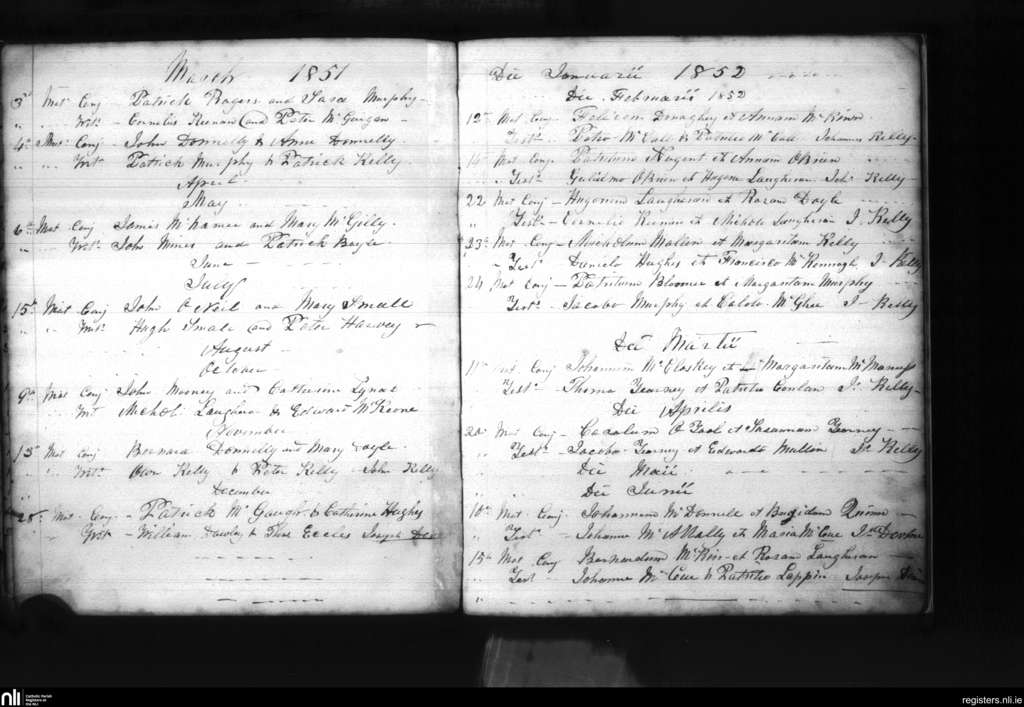 March 1851
3d Mat Conj - Patrick Rogers and Sara Murphy -
" " Wit: - Cornelius Keenan and Peter McGurgan -
4th Mat: Conj. John Donnelly & Anne Donnelly
" " Wit Patrick Murphy & Patrick Kelly.
April
May
6th Mat Conj James McNamee and Mary McGilly.
" " Wit: John and Patrick Boyle -
June
July
15th Mat Conj John O Neil and Mary Small
" " Wit: Hugh Small and Peter Harvey
August
October
9th Mat Conj John Mooney and Catherine
" Wit Nichol: Laughran & Edward McKeone
November
13th Mat Conj Bernard Donnelly and Mary
" Wit: Owen Kelly & Peter Kelly - John Kelly
December
28th Mat - Conj - Patrick McGaugh & Catherine Hughes
" Wit - William & Thos Eccles Joseph
Die Januarii 1852
Die Februarii 1852
12th Mat Conj - Donaghey et Annam
" Test: - Petro McCall & Patricio McCall Johannes Kelly -
Mat Conj - Patricium Nugent et Annam OBrien
" Test: Gulielmo OBrien et Hugone Laugheran Joh: Kelly -
22 Mat Conj - Hugonem Laugheran et Rosam Doyle
" Test: - Cornelio Keenan et Nichola Laugheran J. Kelly
23d Mat Conj - Nicholum Mallin et Margaritam Kelly
- Test Daniele Hughes et Francisco J - Kelly
24 Mat Conj - Patricium Bloomer et Margaritam Murphy
Test: - Jacobo Murphy et Carolo McGhee J - Kelly
Die Martii
11th Mat Conj Johannem McCloskey et Margaritam McManus
Test: - Thoma et Patricio Conlan Jn Kelly -
Die Aprilis
Mat Conj - Carolum O Tool et
" Test: Jacobo et Edwardo Mallin Jn Kelly
" Die Maii
" Die Junii
10th Mat - Conj. Johannem McDonnell et Brigidam
" Test - Johanne McANally et Maria McCue Jph Devlin
15th Mat Conj Bernardum et Rosam Laugheran
" Test - Johanne McCue & Patricio Lappin Joseph
nli
Catholic Parish
Registers at
the NLI
registers.nli.ie